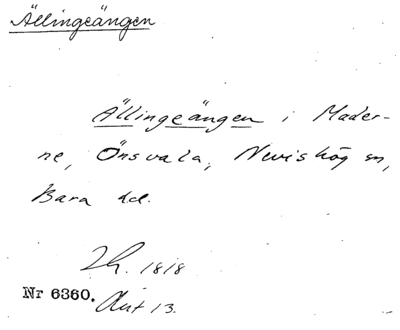 Ällingeängen
Ällingeängen i Mader-
ne, Önsvala, Nevishög sn,
Bara hd.
Lh. 1818
Nr 6360. Akt 13.